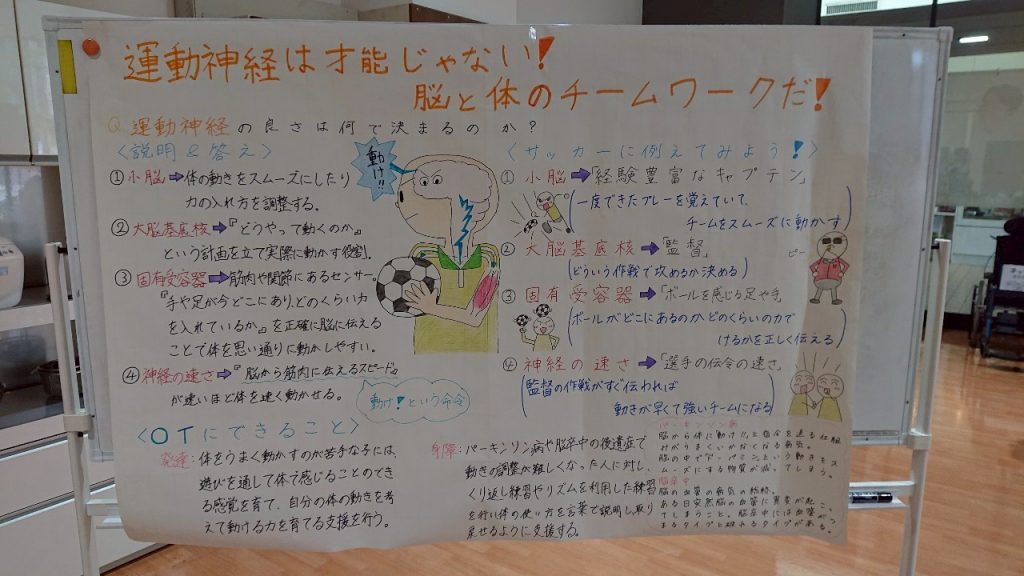 運動神経は才能じゃない!
脳と体のチームワークだ!
Q.運動神経の良さは何で決まるのか?
<説明&答え>
①小脳➡体の動きをスムーズにしたり
力の入れ方を調整する。
②大脳基底核➡『どうやって動くのか』
という計画を立て実際に動かす役割。
③固有受容器➡筋肉や関節にあるセンサー。
『手や足が今どこにあり、どのくらい力
を入れているか』を正確に脳に伝える
ことで体を思い通りに動かしやすい。
④神経の速さ➡『脳から筋肉に伝えるスピード』
が速いほど体を速く動かせる。
動け!!
動け!という命令
<サッカーに例えてみよう!>
①小脳➡「経験豊富なキャプテン」
(一度できたプレーを覚えていて、
チームをスムーズに動かす)
②大脳基底核➡「監督」
(どういう作戦で攻めるか決める)
ピー
③固有受容器➡「ボールを感じる足や手」
(ボールがどこにあるのか、どのくらいの力で
けるかを正しく伝える)
④神経の速さ➡「選手の伝令の速さ」
(監督の作戦がすぐ伝われば
動きが早くて強いチームになる)
<OTにできること>
発達:体をうまく動かすのが苦手な子には、
遊びを通して体で感じることのでき
る感覚を育て、自分の体の動きを考
えて動ける力を育てる支援を行う。
身障:パーキンソン病や脳卒中の後遺症で
動きの調整が難しくなった人に対し、
くり返し練習やリズムを利用した練習
を行い体の使い方を言葉で説明し取り
戻せるように支援する。
パーキンソン病
脳から体に「動け!」と命令を送る仕組
みがうまくいかなくなる病気。
脳の中で「ドーパミン」という動きをス
ムーズにする物質が減ってしまう。
脳卒中
脳の血管の病気の総称。
ある日突然脳の血管に異常が起